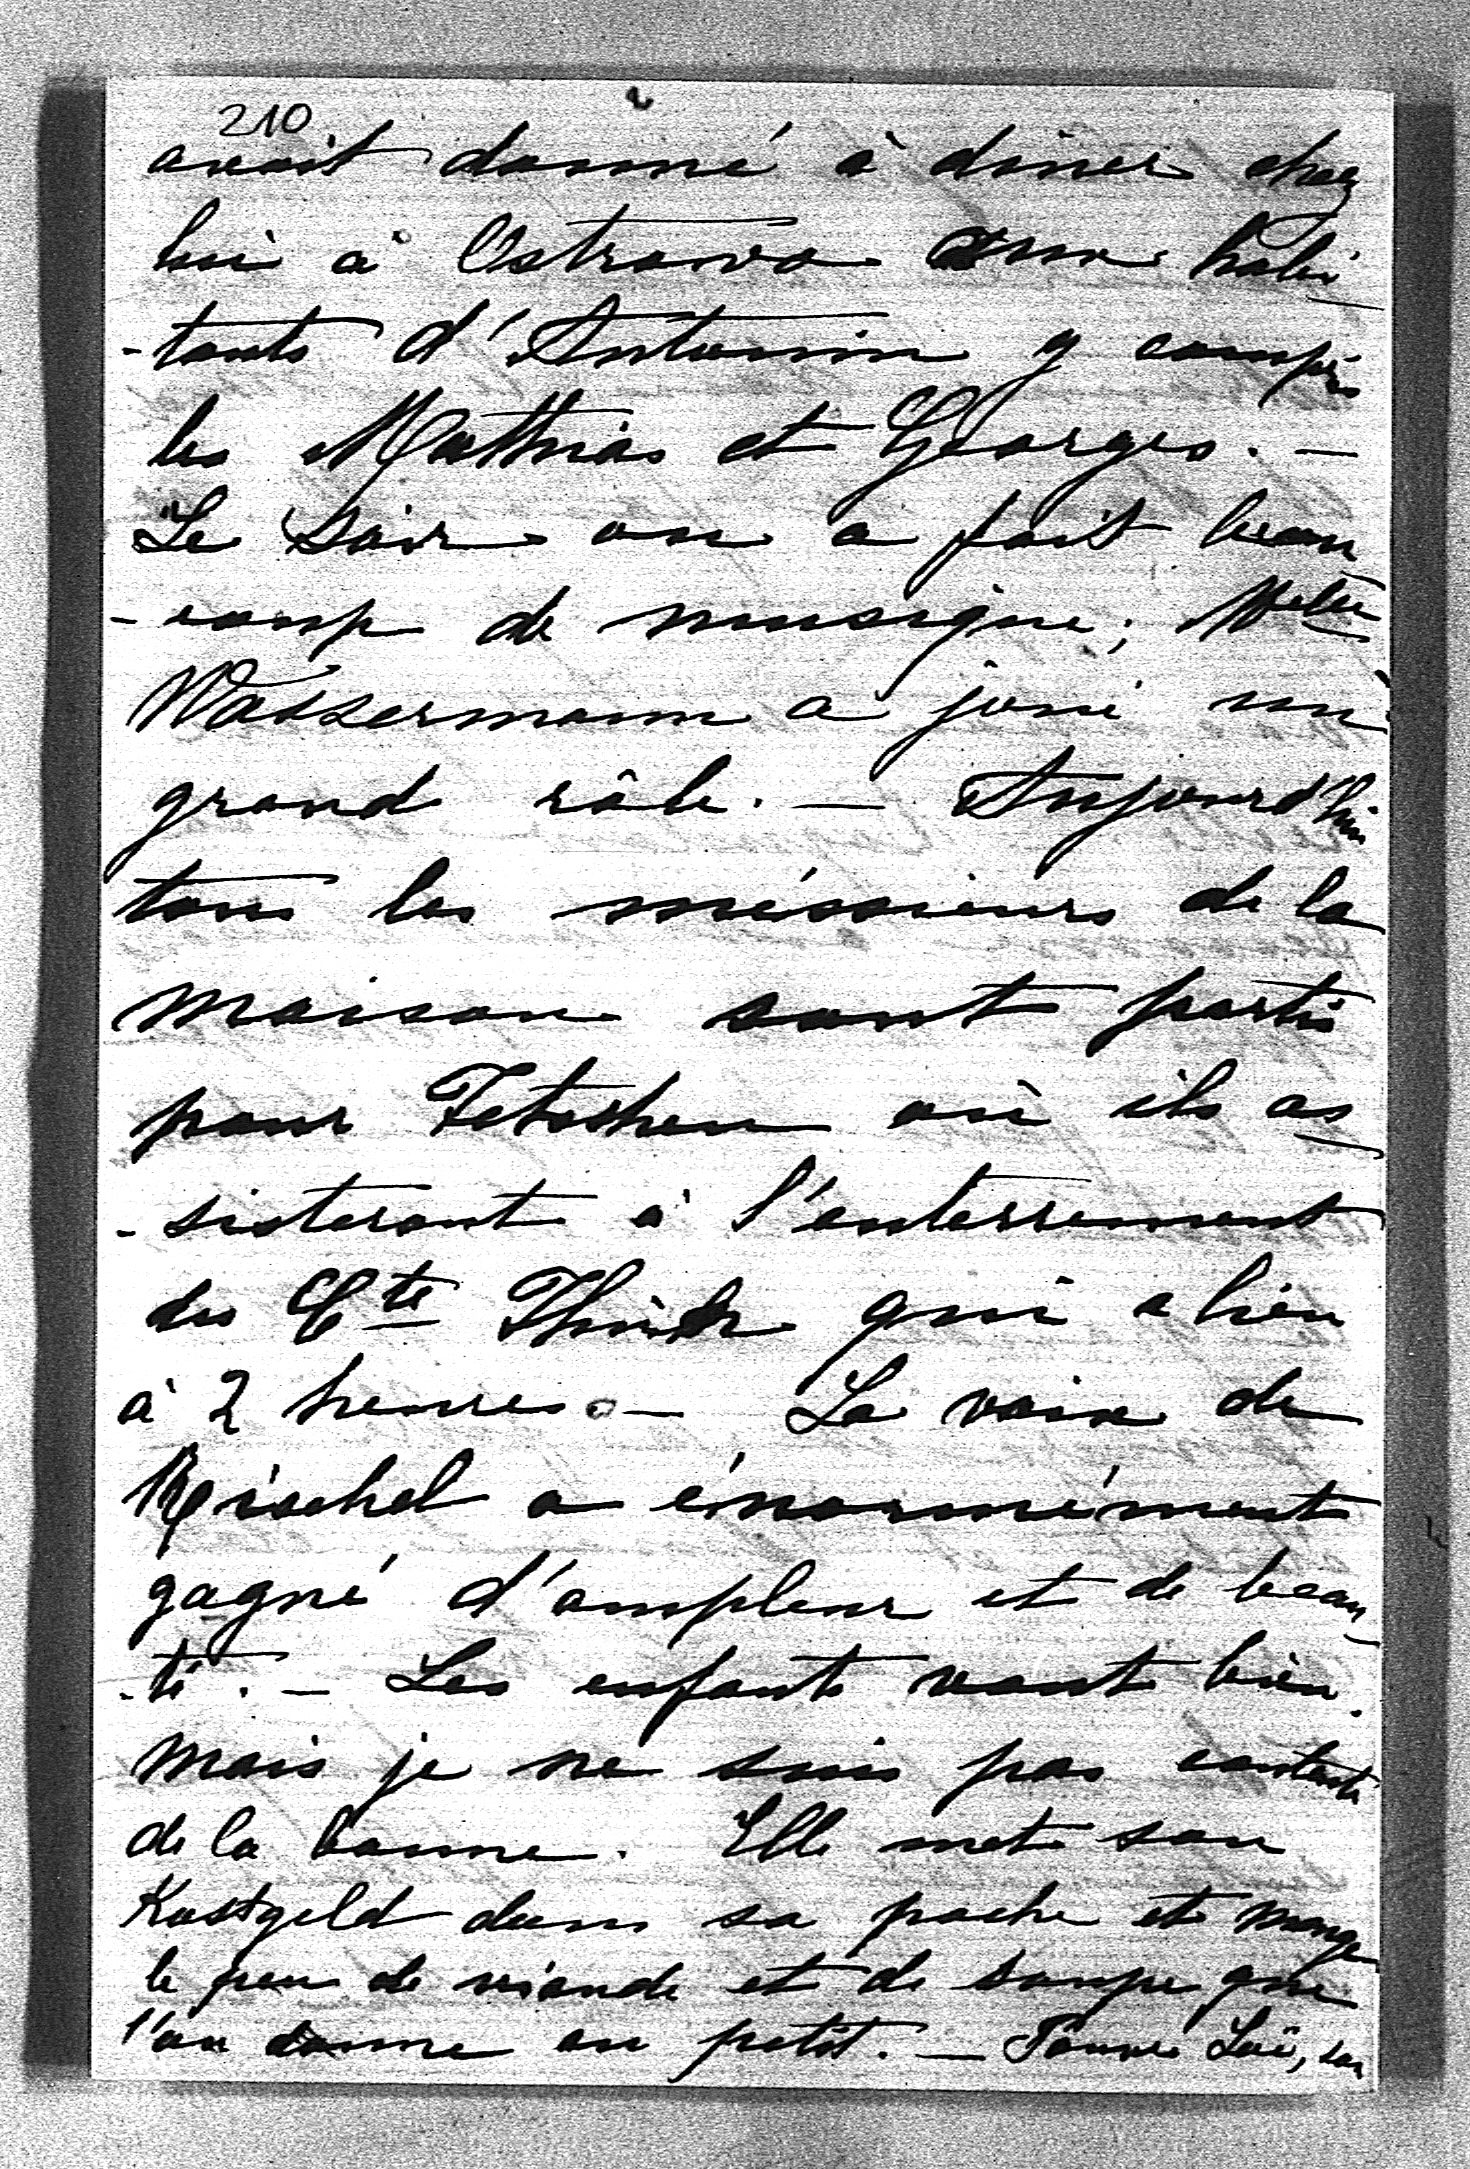 210
avait donné à diner chez
lui à Ostrowo aux habi
-tants d'Antonin y compris
les Mathias et Georges. —
Le soir on a fait beau
-coup de musique; Melle
Wassermann a joué un
grand rôle. — Aujourd'hui
tous les méssieurs de la
maison sont partis
pour Tetschen où ils as
-sisteront à l'enterrement
du Cte Thun qui a lieu
à 2 heures. — La voix de
Reischel a énormément
gagné d'ampleur et de beau
-té. — Les enfants vont bien.
mais je ne suis pas contente
de la bonne. Elle met son
Kostgeld dans sa poche et mange
le peu de viande et de soupe que
l'on donne au petit. — Pauvre Loë, sa